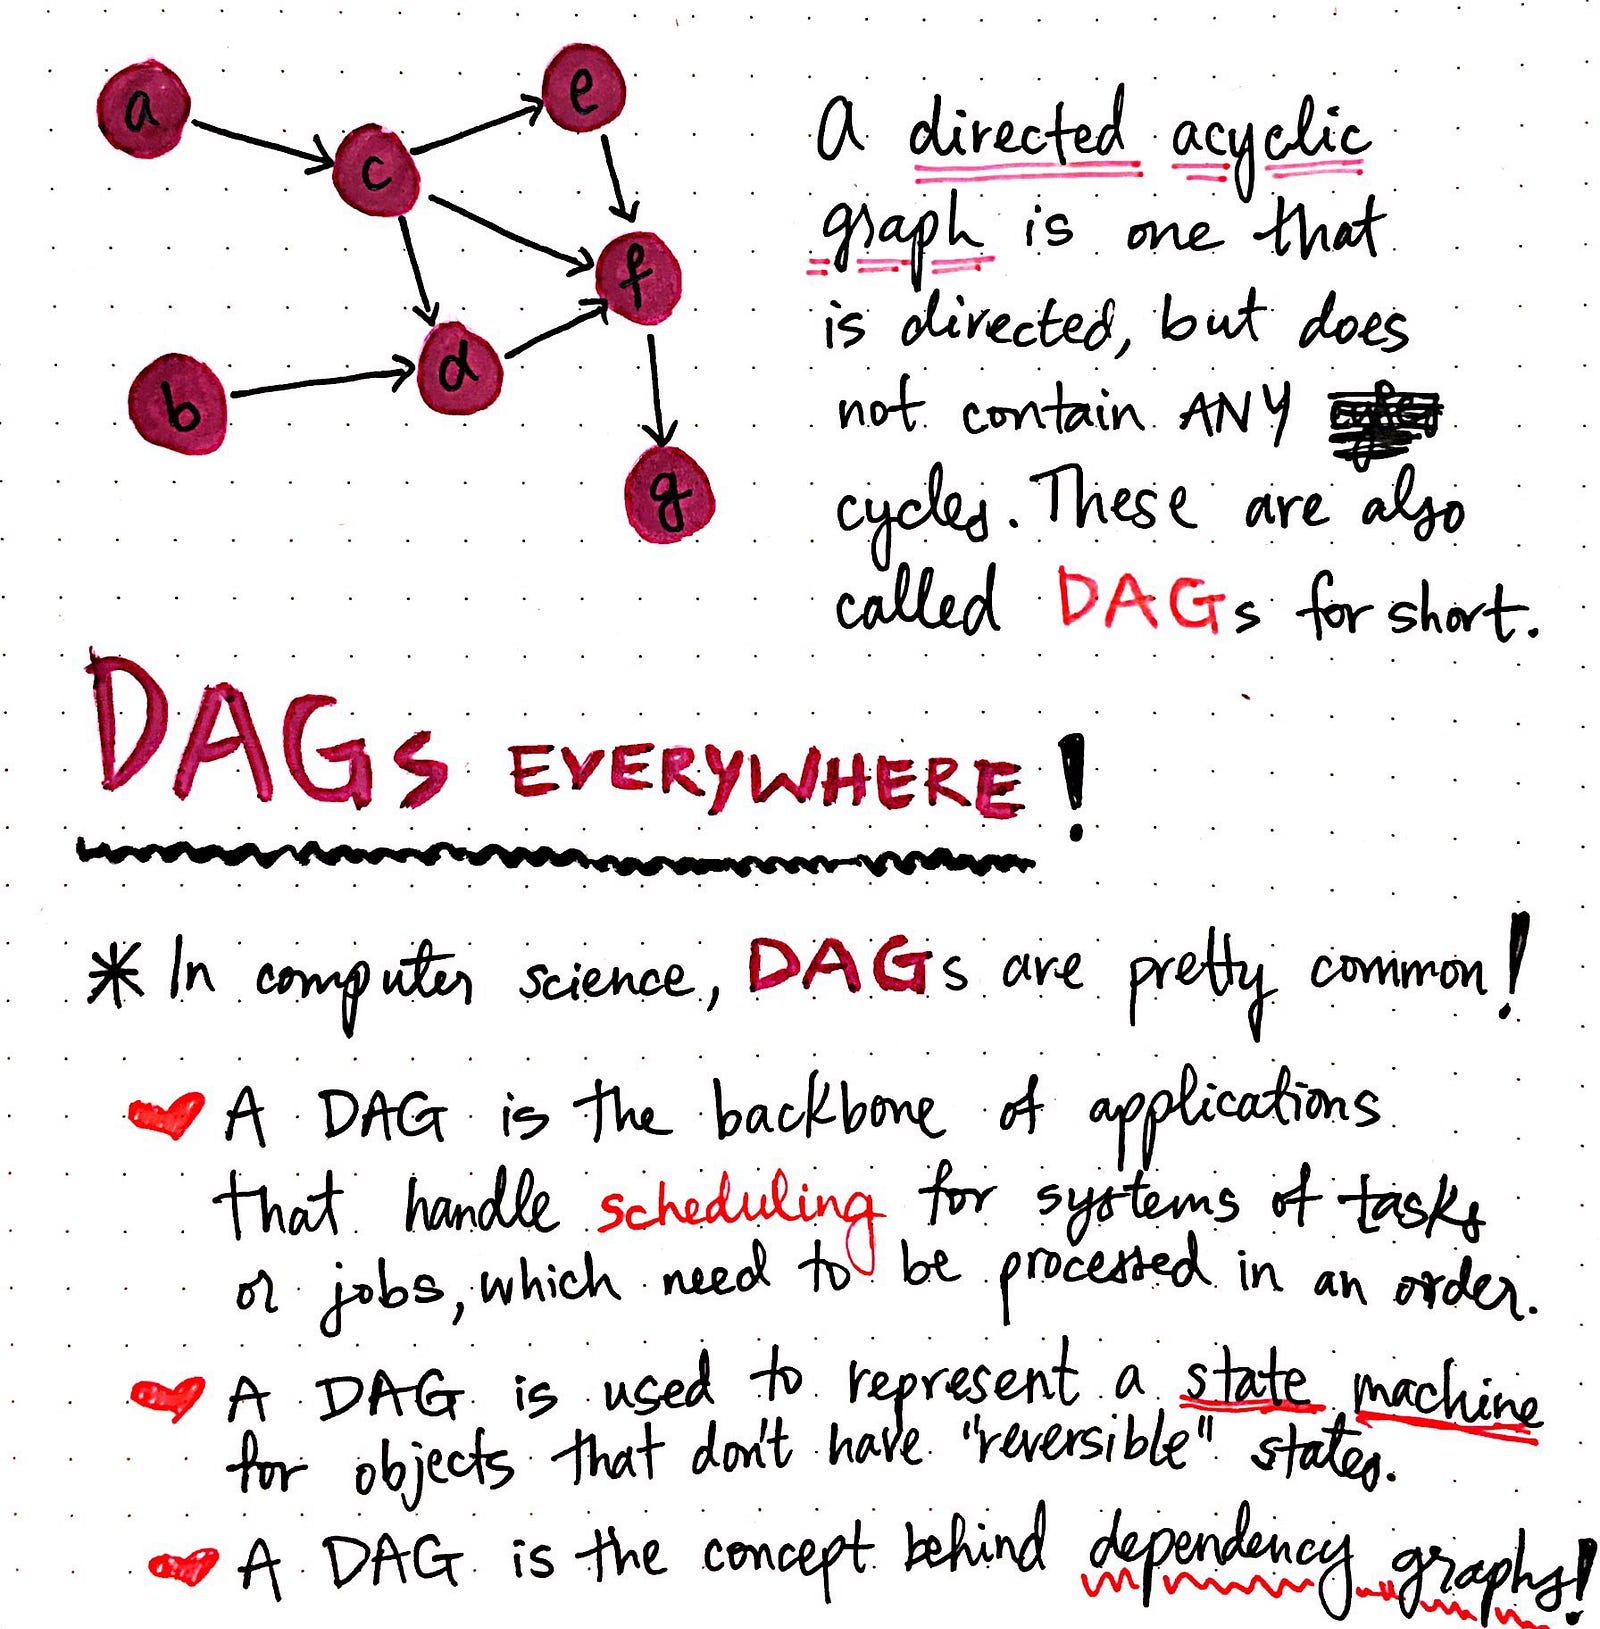 a
e
c
f
d
b
g
A directed acyclic
graph is one that
is directed, but does
not contain ANY
cycles. These are also
called DAGs for short.
DAGs EVERYWHERE!
* In computer science, DAGs are pretty common!
A DAG is the backbone of applications
that handle scheduling for systems of tasks
or jobs, which need to be processed in an order.
A DAG is used to represent a state machine
for objects that don't have "reversible" states.
A DAG is the concept behind dependency graphs!